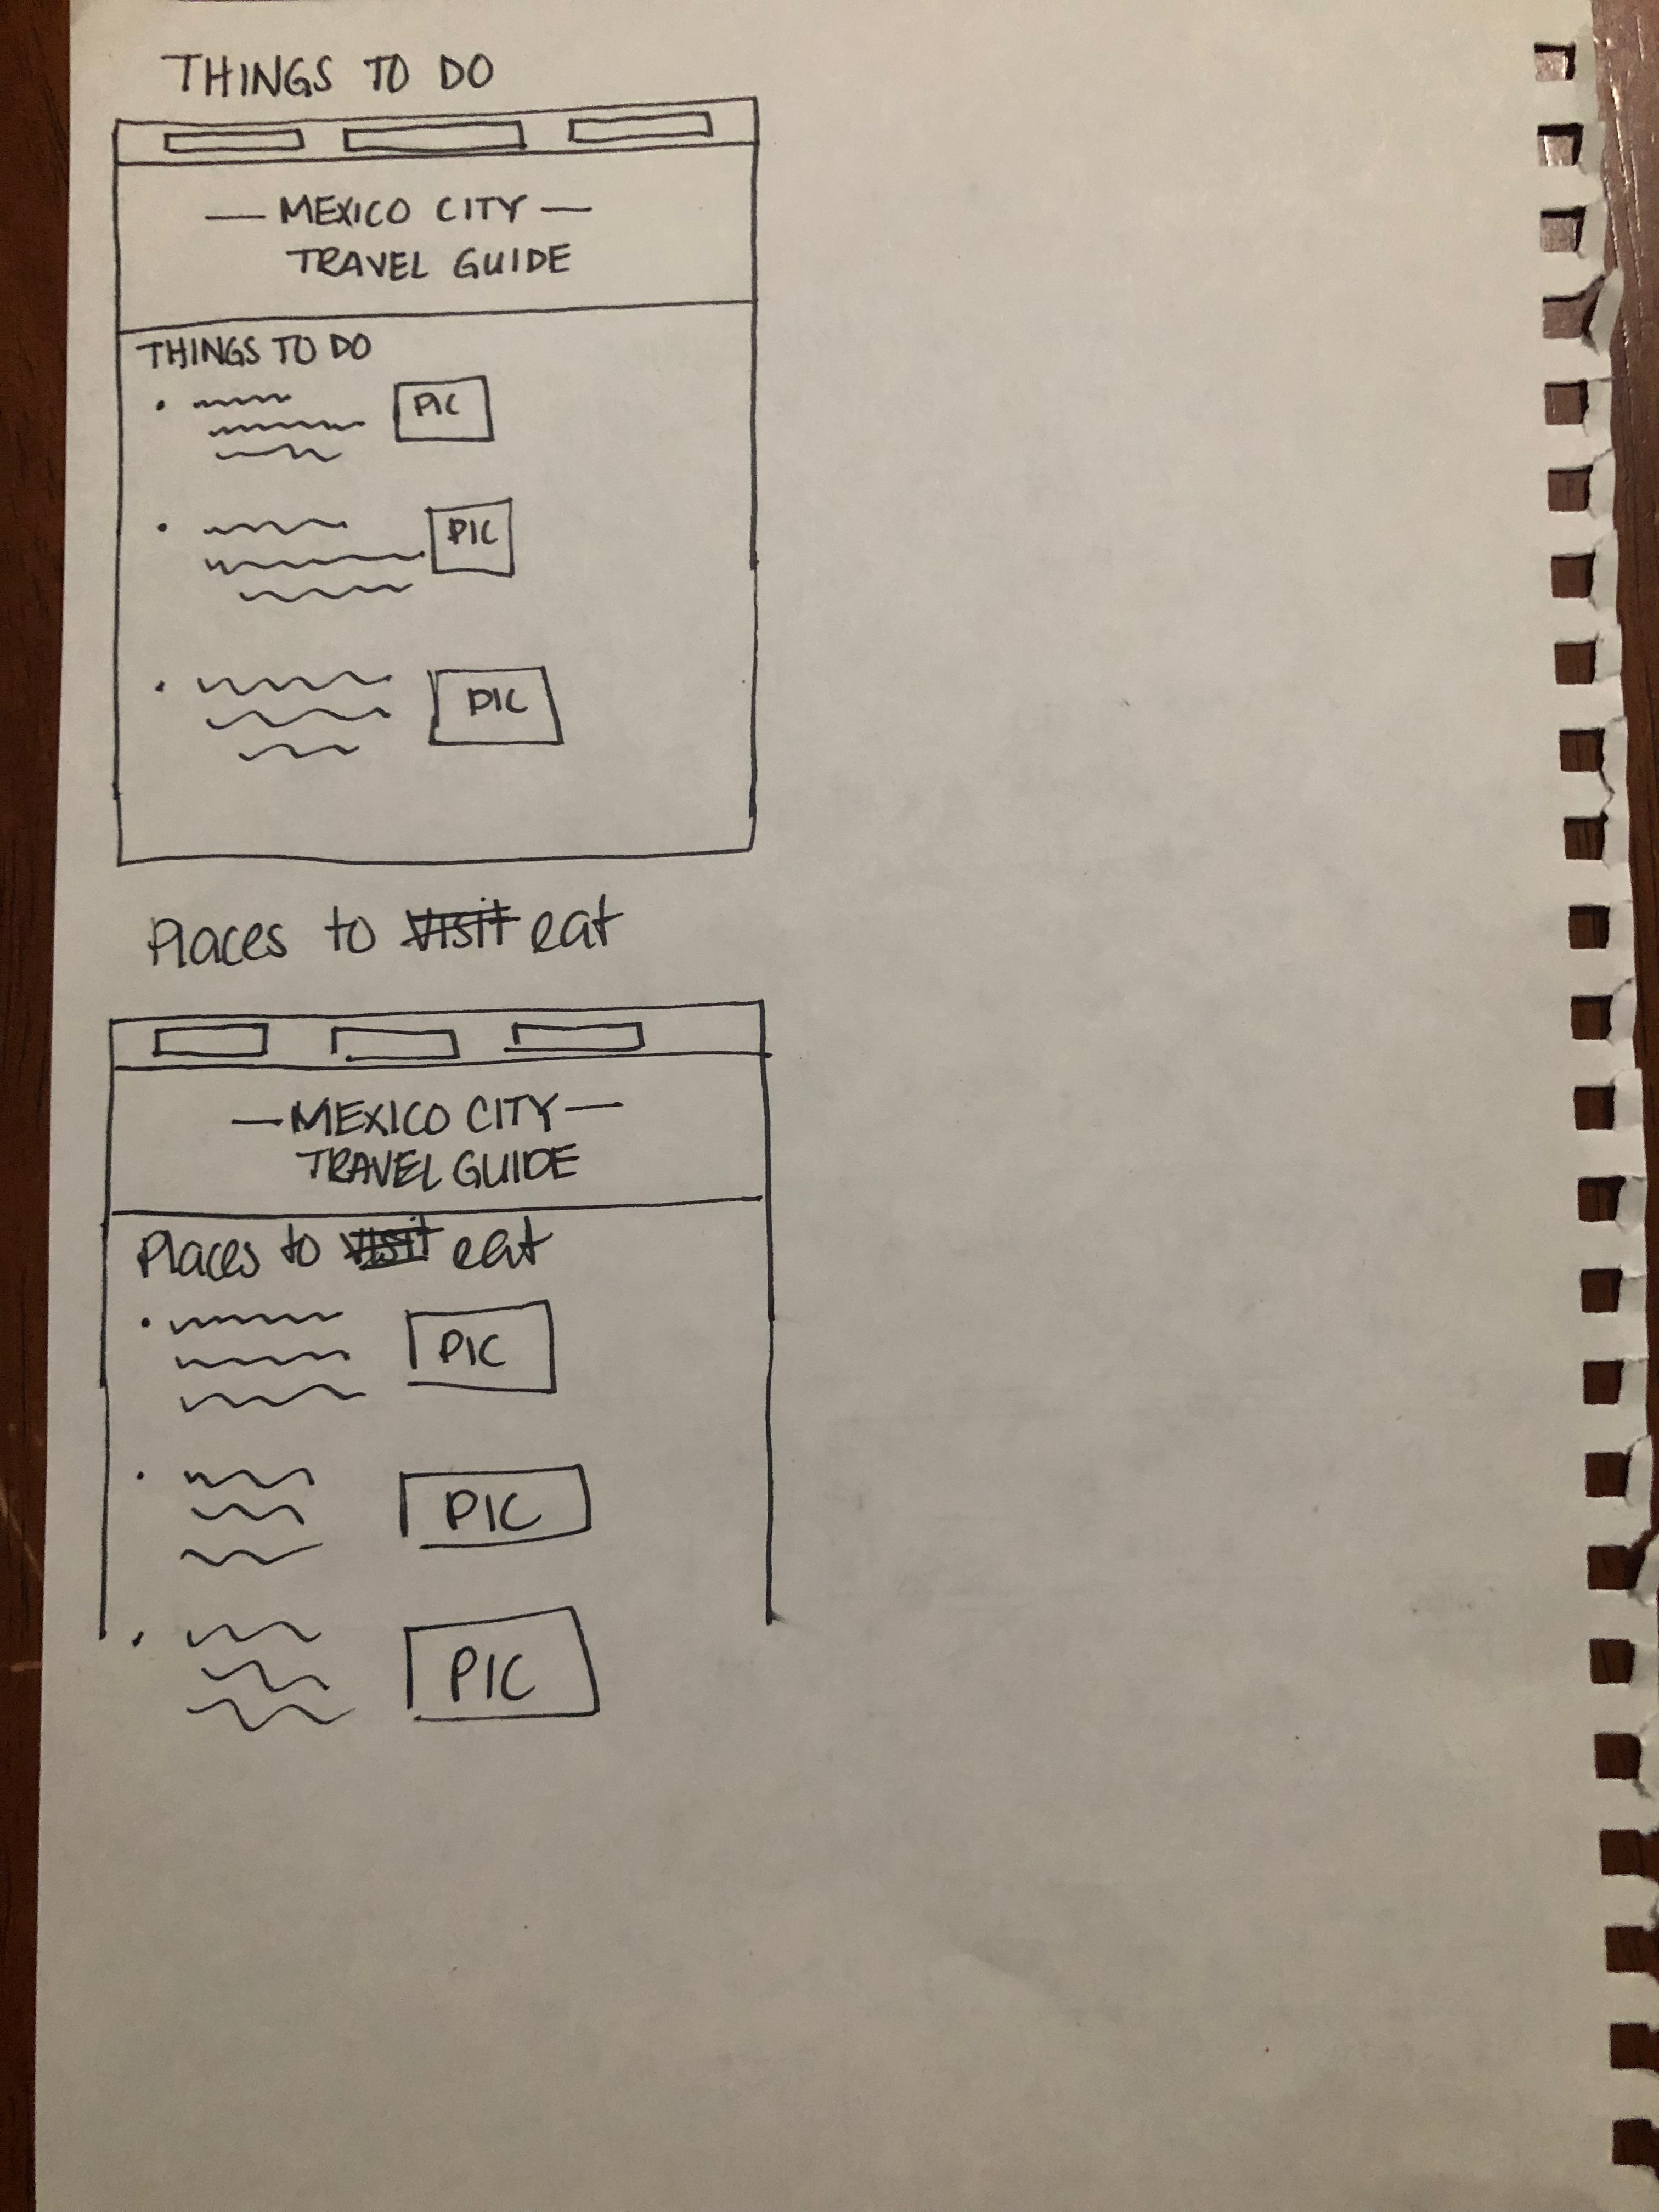 THINGS TO DO
— MEXICO CITY —
TRAVEL GUIDE
THINGS TO DO
PIC
PIC
PIC
Places to visit eat
— MEXICO CITY —
TRAVEL GUIDE
Places to visit eat
PIC
PIC
PIC